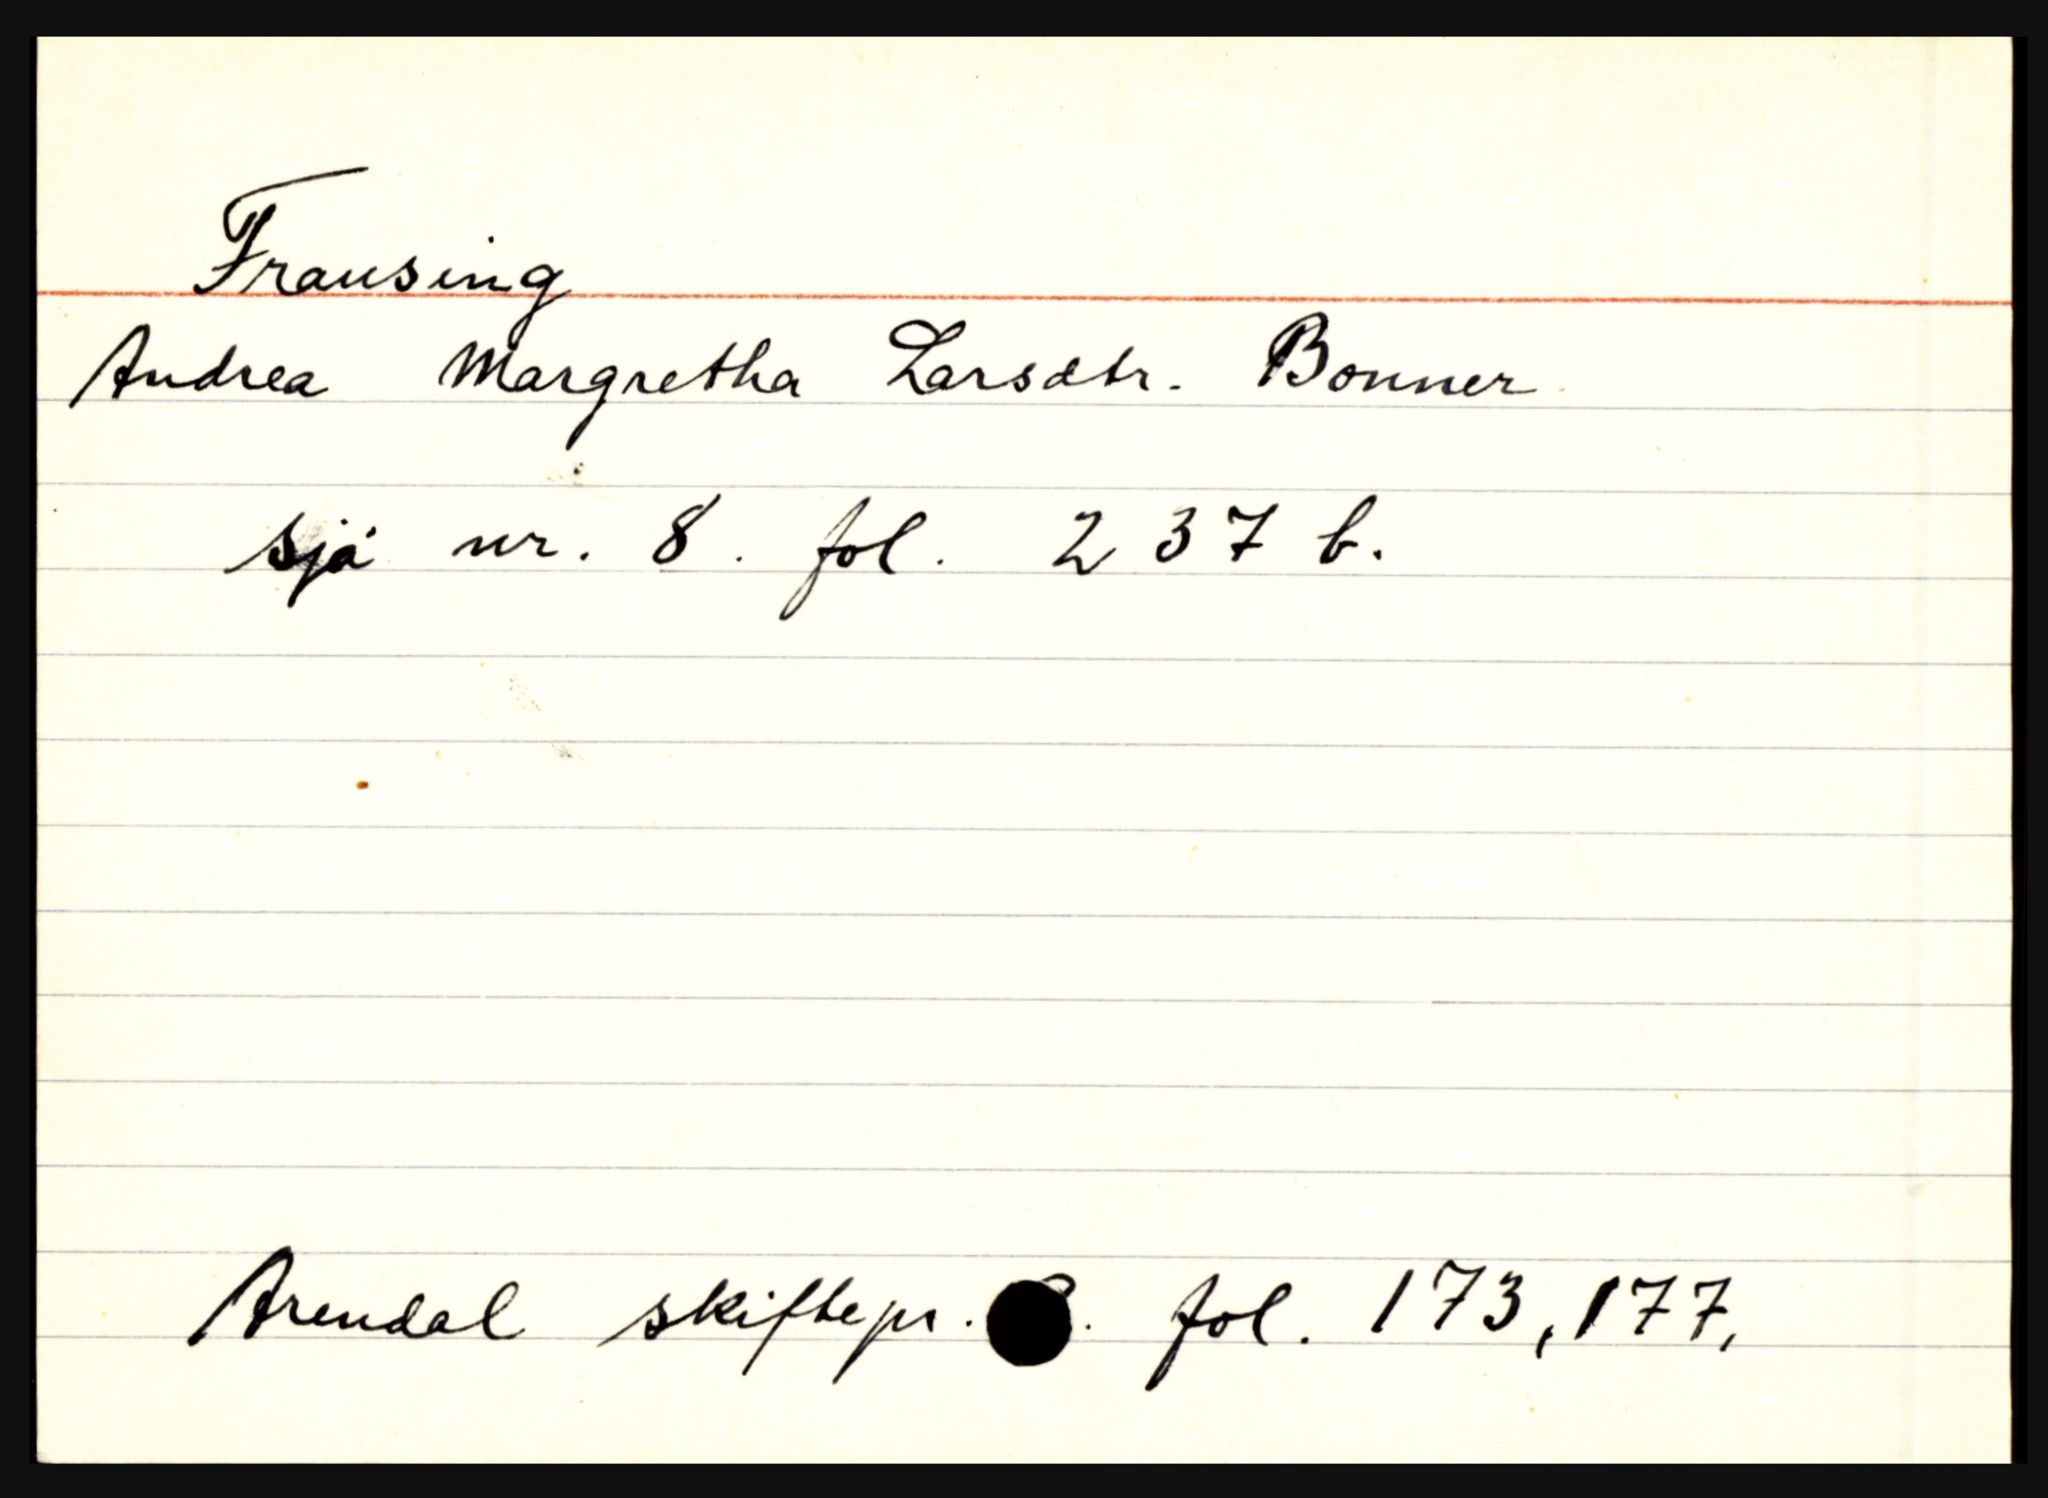 Frausing
Andrea Margretha Larsdtr. Bonner
sjå nr. 8. fol. 237 b.
Arendal skiftepr. fol. 173, 177,